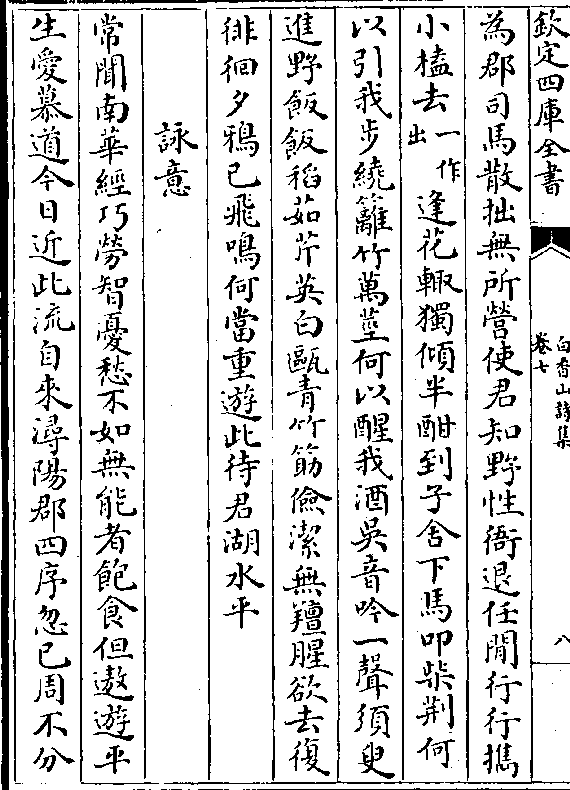 欽定四庫全書
白香山詩集
卷七
八
為郡司馬散拙無所營使君知野性衙退任閒行行攜
小榼去一作出逢花輙獨傾半酣到子舍下馬叩柴荆何
以引我步繞籬竹萬莖何以醒我酒吳音吟一聲須臾
進野飯飯稻茹芹英白甌青竹筯儉潔無羶腥欲去復
徘徊夕鴉已飛鳴何當重遊此待君湖水平
詠意
常聞南華經巧勞智憂愁不如無能者飽食但遨遊平
生愛慕道今日近此流自來潯陽郡四序忽已周不分